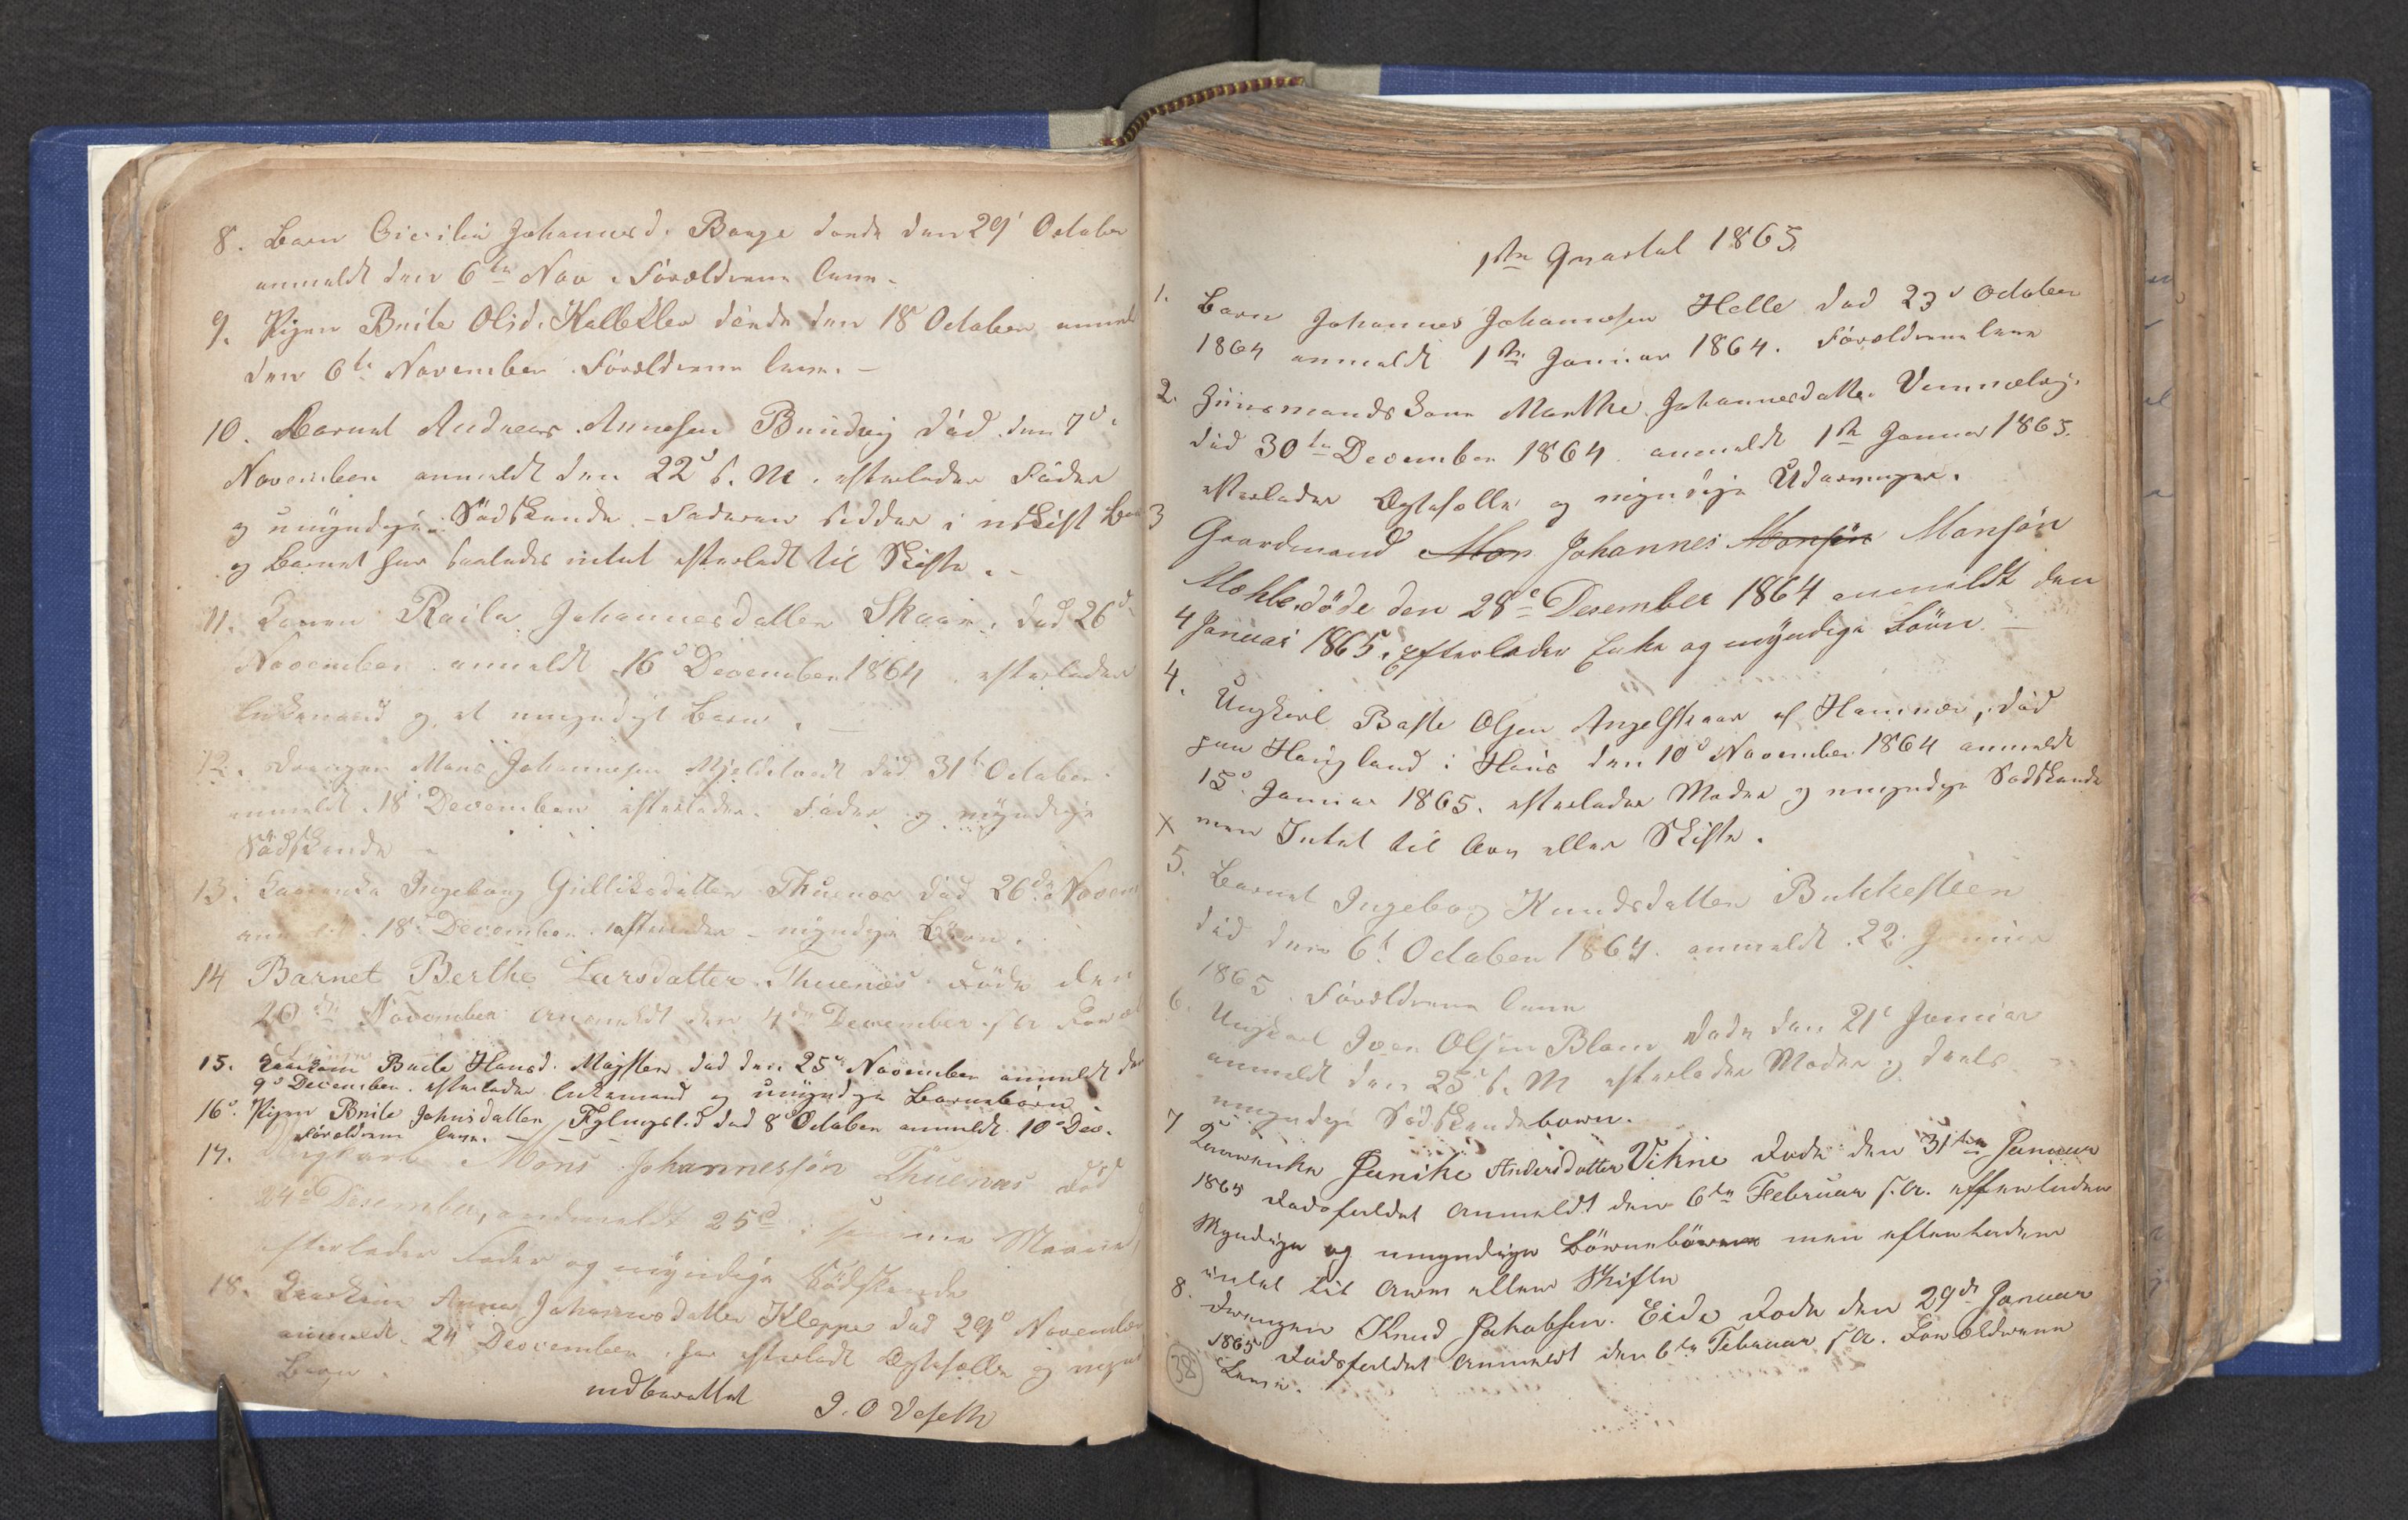 8. Barn Cicilia Johannesd. Bauge døde den 29' October
anmeldt den 6te Nov. Forældrene leve.
9. Pigen Brite Olsd. Kalleklev døde den 18 October anmeldt
den 6te November. Forældrene leve. –
10. Barnet Andreas Annesen Bruvig død den 7d.
November anmeldt den 22d s. M. efterlader Fader
og umyndige Sødskende. – Faderen sidder i uskift Bo
og Barnet har saaledes intet efterladt til Skifte. –
11. Konen Raila Johannesdatter Skaar, død 26d
November anmeldt 16d December 1864. efterlader
Enkemand og et umyndigt Barn.
12. Drengen Mons Johannesen Mjeldetvedt død 31t October
anmeldt 18 December efterlader Fader og myndige
Sødskende –
13. Kaarenke Ingeborg Gulliksdatter Thuenæs død 26de Novem
anmeldt 18 December. efterlader – myndige Børn.
14 Barnet Berthe Larsdatter Thuenæs døde den
20de November anmeldt den 4de December s. A. Foræl
15. Kaarkone Brite Hansd. Mjøster død den 25d November anmeldt den
9d December. efterlader Enkemand og umyndige Barnebørn
16d. Pigen Brite Johnsdatter død 8d October anmeldt 10d Dec.
Forældrene leve. –
17. Ungkarl Mons Johannessøn Thuenæs død
24d Desember, andmeldt 25d samme Maaned
efterlader Fader og myndige Sødskende
18. Kaarkone Anna Johannesdatter Kleppe død 29d November
anmeldt 24 December, har efterladt Ægtefælle og mynd
Børn.
indberettet
J. O Veseth
1ste Qvartal 1865
1. Barn Johannes Johannesen Helle død 23d October
1864 anmeldt 1ste Januar 1864. Forældrene leve
2. Huusmandskone Marthe Johannesdatter
død 30te December 1864 anmeldt 1ste Januar 1865.
efterlader Ægtefælle og myndige Udarvinger.
3 Gaardmand Mon Johannes Monsøn Monsøn
døde den 28de Desember 1864 anmeldt den
4 Januar 1865, efterlader Enke og myndige Børn
4. Ungkarl Baste Olsen Angelskaar af Hammer, død
paa Haugland i Haus den 10d November 1864 anmeldt
15d. Januar 1865. efterlader Moder og umyndige Sødskende
x men Intet til Arv eller Skifte.
5. Barnet Ingeborg Knudsdatter Bukkesteen
død den 6t October 1864. anmeldt 22 Januar
1865. Forældrene leve
6. Ungkarl Iver Olsen Blom døde den 21d Januar
anmeldt den 25d s. M efterlader Moder og deels
umyndige Sødskendebørn.
7 Kaarenke Janike Andersdatter Vikne døde den 31te Januar
1865 Dødsfaldet anmeldt den 6te Februar s. A. efterlader
Myndige og umyndige Børnebørn men efterlader
intet til Arv eller Skifte
8. Drengen Knud Jakobsen Eide døde den 29de Januar
1865 Dødsfaldet anmeldt den 6te Februar s A. Forældrene
38 Leve.